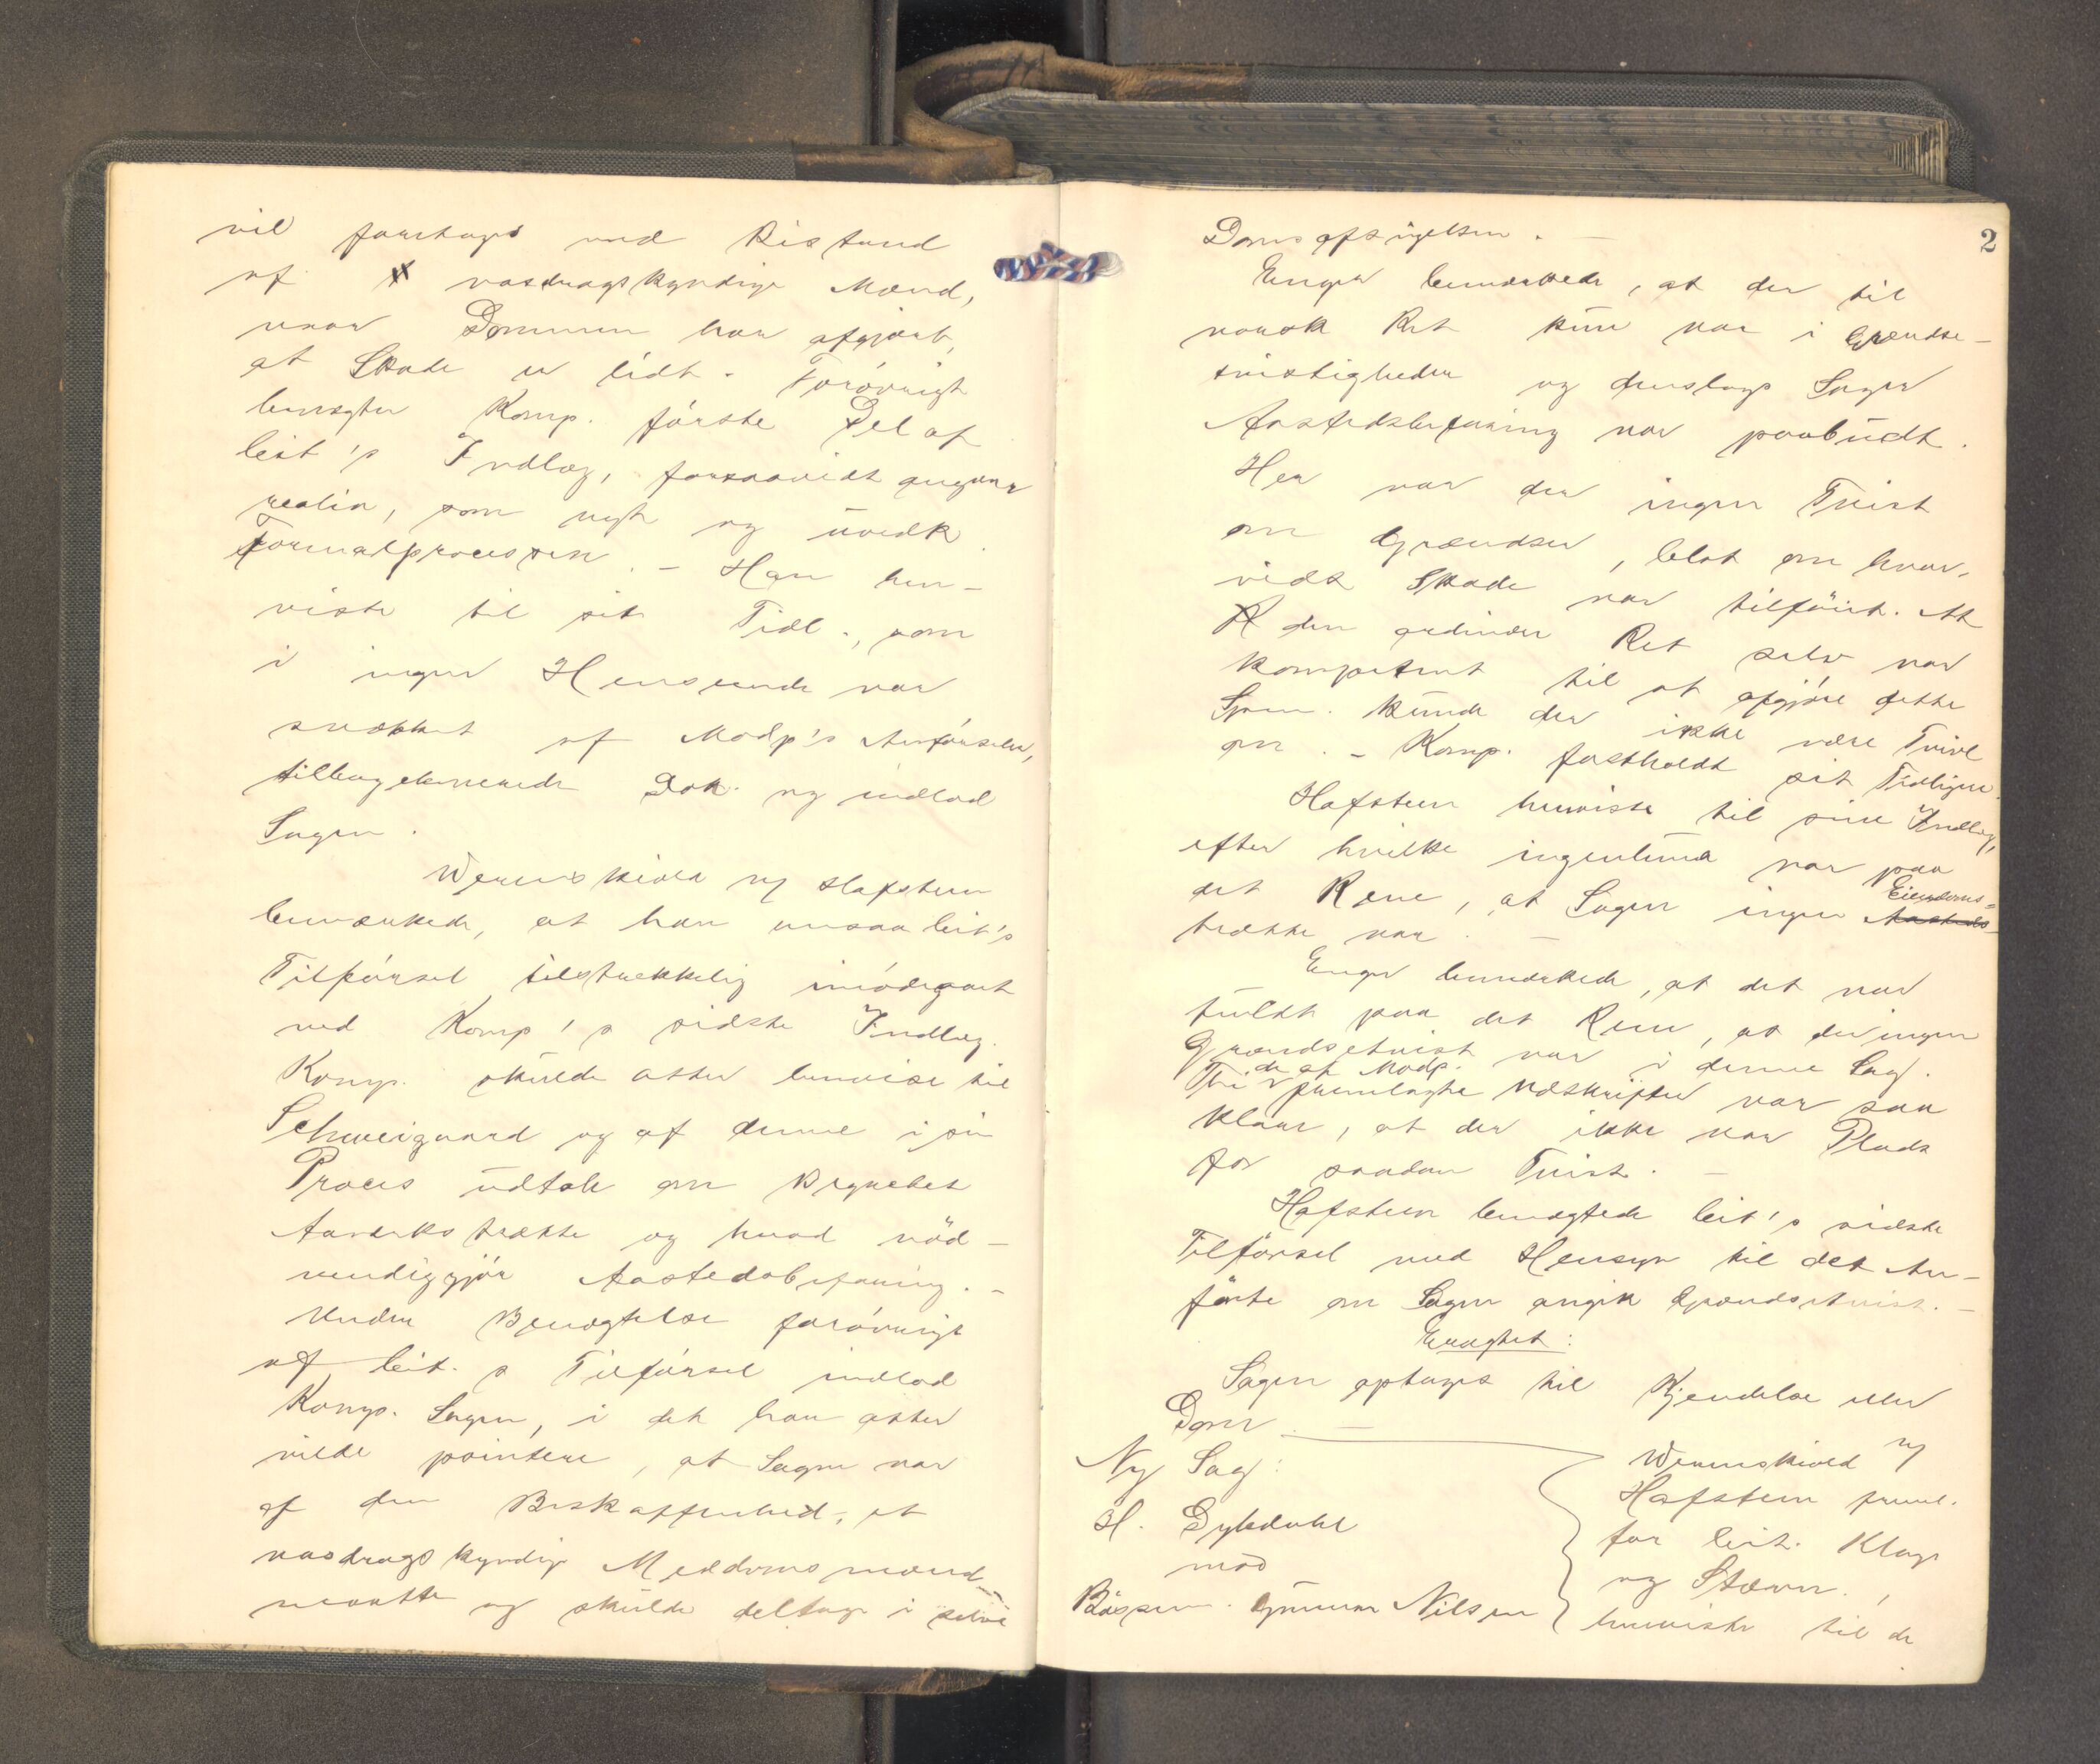 vil foretages med Bistand
af vasdragskyndige Mænd,
naar Dommen har afgjort,
at Skade er lidt. Forøvrigt
benegter Komp. første Del af
Cit's Indlæg, forsaavidt angaar
realia, som nyt og uvedk.
Formalprocessen. – Han hen-
viste til sit Tidl., som
i ingen Henseende var
svækket af Modp's Anførseler,
tilbagekrævede Dok. og indlod
Sagen.
Werenskiold og Hafsteen
bemærkede, at han ansaa Cit's
Tilførsel tilstrækkelig imødegaaet
ved Komp's sidste Indlæg.
Komp. skulde atter henvise til
Schweigaard og af denne i sin
Proces udtale om Begrebet
Aastedstrætte og hvad nød-
vendiggjør Aastedsbefaring. –
Under Benegtelse forøvrigt
af Cit.s Tilførsel indlod
Komp. Sagen, i det han atter
vilde pointere, at Sagen var
af den Beskaffenhed, at
vasdragskyndige Meddomsmænd
maatte og skulde deltage i selve
2
Domsafsigelsen. –
Enger bemærkede, at der til
norsk Ret kun var i Grændse-
tvistigheder og deslags Sager
Aastedsbefaring var paabudt.
Her var der ingen Tvist
om Grændser, blot om hvor-
vidt Skade var tilføiet. At
den ordinær Ret selv var
kompetent til at afgjøre dette
Spm. kunde der ikke være Tvivl
om. – Komp. fastholdt sit Tidligere.
Hafsteen henviste til sine Indlæg,
efter hvilke ingenlunde var paa
det Rene, at Sagen ingen Eiendoms-
trætte var. –
Enger bemærkede, at det var
fuldt paa det Rene, at der ingen
Grændsetvist var i denne Sag.
de af Modp.
Thi fremlagte Udskrifter var saa
klare, at der ikke var Plads
for saadan Tvist. –
Hafsteen benegtede Cit's sidste
Tilførsel med Hensyn til det An-
førte om Sagen angik Grændsetvist. –
Eragtet:
Sagen optages til Kjendelse eller
Dom. –
Ny Sag:
H. Dybdahl
mod
Gunnar Nilsen
Werenskiold og
Hafsteen freml.
for Cit. Klage
og Stævn.,
henviste til de